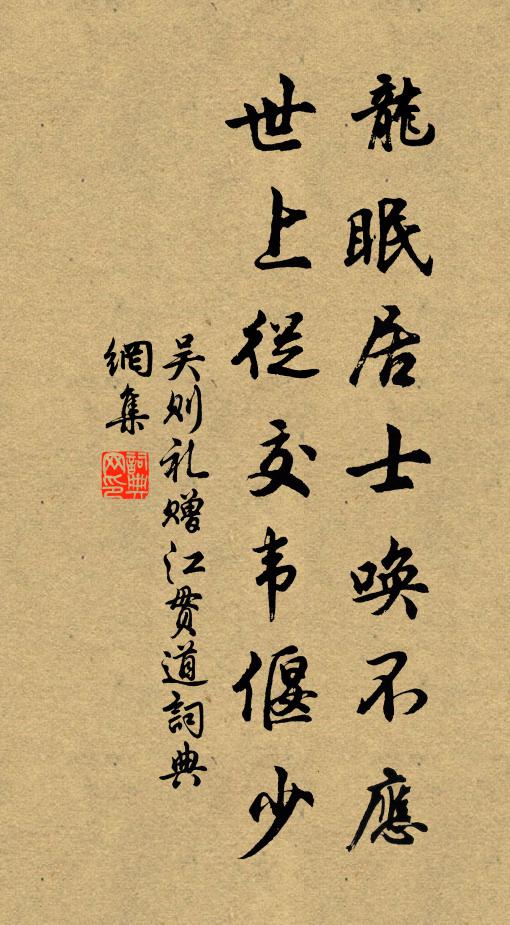 龍眠居士喚不應
世上從交韦偃少
吴则礼赠江贯道詞典
網集
詞典网印